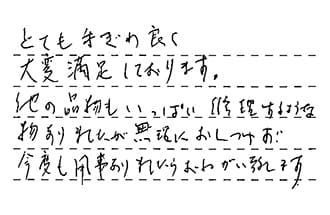 とても手ぎわ良く
大変満足しております。
他の品物もいっぱい修理するような
物ありましたが無理におしつけず
今度も用事ありましたらおねがい致します